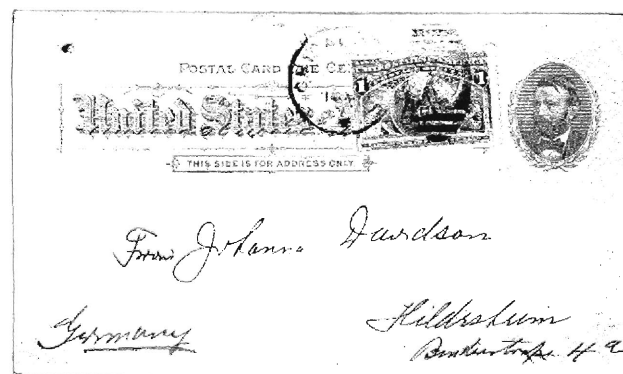 POSTAL CARD ONE CE
United States
1 1
THIS SIDE IS FOR ADDRESS ONLY
Frau Johanna Davidson
Hildesheim
Germany
4a